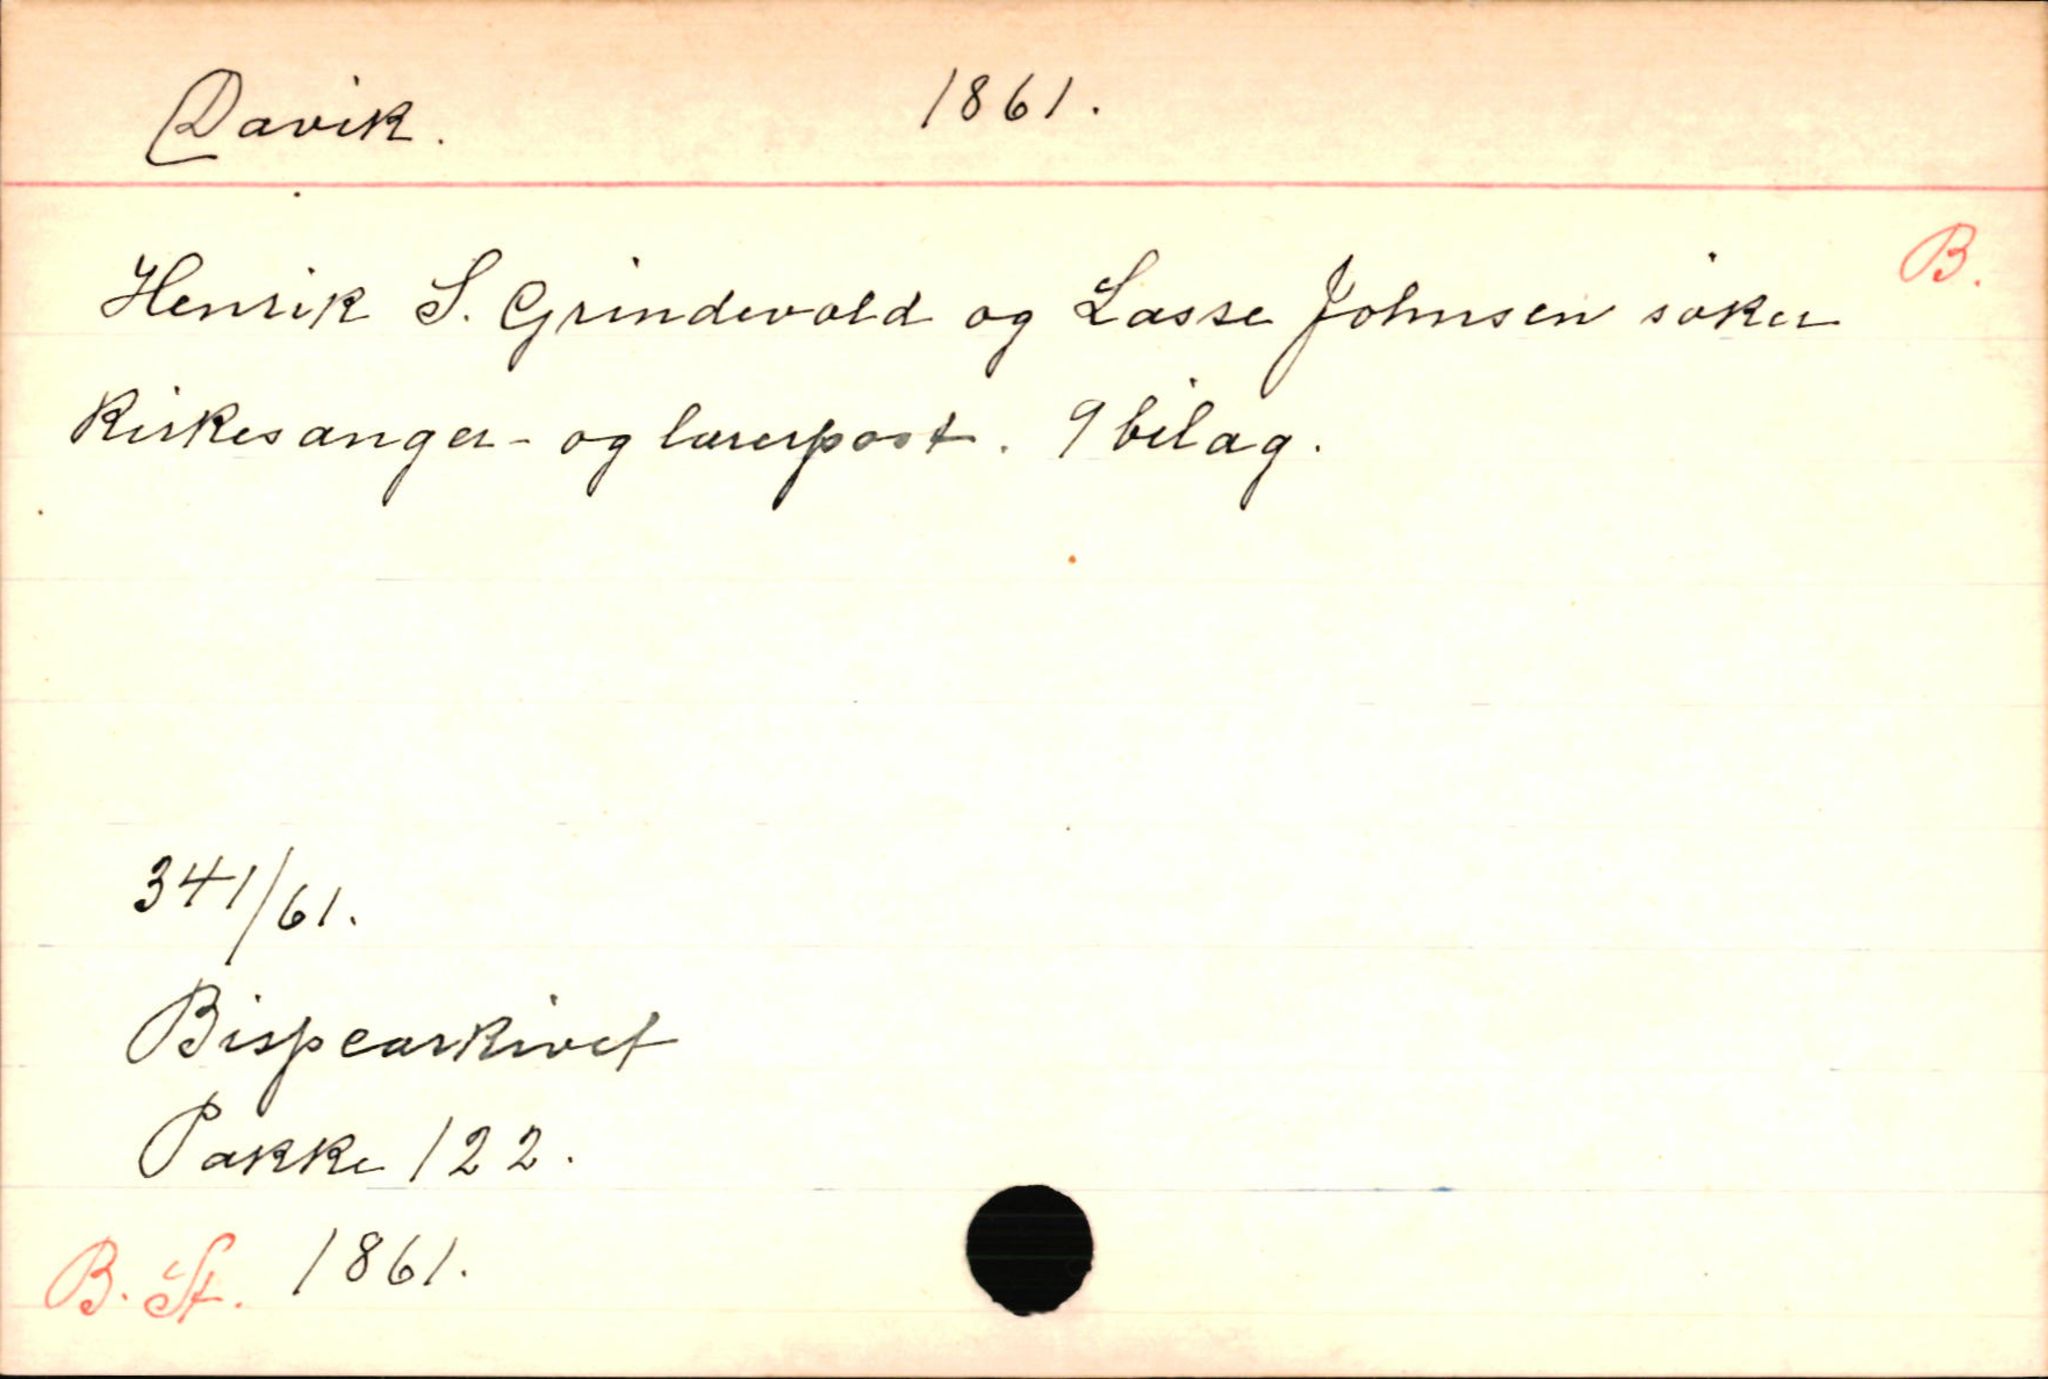 Davik. 1861.
B.
Henrik S. Grindevold og Lasse Johnsen søker
Kirkesanger- og lærerpost. 9 bilag.
341/61.
Bispearkivet
Pakke 122.
B. St. 1861.